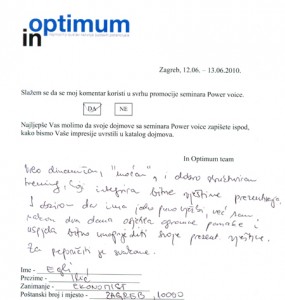 in optimum
Zagreb, 12.06. – 13.06.2010.
Slažem se da se moj komentar koristi u svrhu promocije seminara Power voice.
DA NE
Najljepše Vas molimo da svoje dojmove sa seminara Power voice zapišete ispod,
kako bismo Vaše impresije uvrstili u katalog dojmova.
In Optimum team
Vrlo dinamičan, "moćan", i dobro strukturiran
trening, koji integrira bitne vještine prezentacije.
S obzirom da ima jako puno vježbi, već sam
nakon dva dana osjetila ogromne pomake i
uspjela bitno unaprijediti svoje prezent. vještine.
Za
Ime -
Prezime -
Zanimanje - EKONOMIST
Poštanski broj i mjesto - ZAGREB, 10000